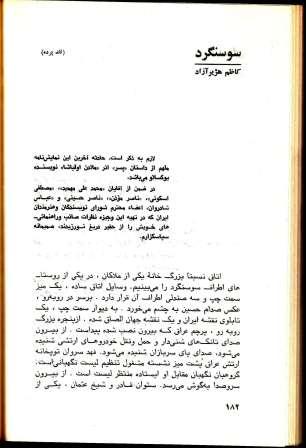 سوسنگرد
(تک پرده)
کاظم هژیرآزاد
لازم به ذکر است، حادثه آخرین این نمایش‌نامه
ملهم از داستان «پسر» اثر نویسنده
یوگسلاو می‌باشد.
در ضمن از آقایان «محمد علی بهمنی»، «مصطفی
اسکوئی»، «ناصر مؤذن»، «ناصر حسینی» و «عباس
شادروان» اعضاء محترم شورای نویسندگان و هنرمندان
ایران که در تهیه این وجیزه نظرات صائب و راهنمائی‌
های خویش را از حقیر دریغ نورزیدند، صمیمانه
سپاسگزارم.
اتاق نسبتاً بزرگ خانهٔ یکی از ملاکان، در یکی از روستا‌
های اطراف سوسنگرد را می‌بینیم. وسایل اتاق ساده، یک میز
سمت چپ و سه صندلی اطراف آن قرار دارد. بر سر در روبه‌رو،
عکس صدام حسین به چشم می‌خورد. به دیوار سمت چپ، یک
تابلوی نقشه ایران و یک نقشه جهان الصاق شده. از پنجره بزرگ
روبه رو، پرچم عراق که بیرون نصب شده پیداست. از بیرون
صدای تانک‌های شنی‌دار و حمل و نقل خودروهای ارتشی شنیده
می‌شود، صدای پای سربازان شنیده می‌شود. نهد سروان توپخانه
ارتش عراق پشت میز نشسته مشغول تنظیم لیست نگهبانی است.
گروهبان نگهبان مقابل او ایستاده منتظر لیست است. از بیرون
سروصدا به‌گوش می‌رسد. ستوان قادر و شیخ عثمان، یکی از
۱۸۲